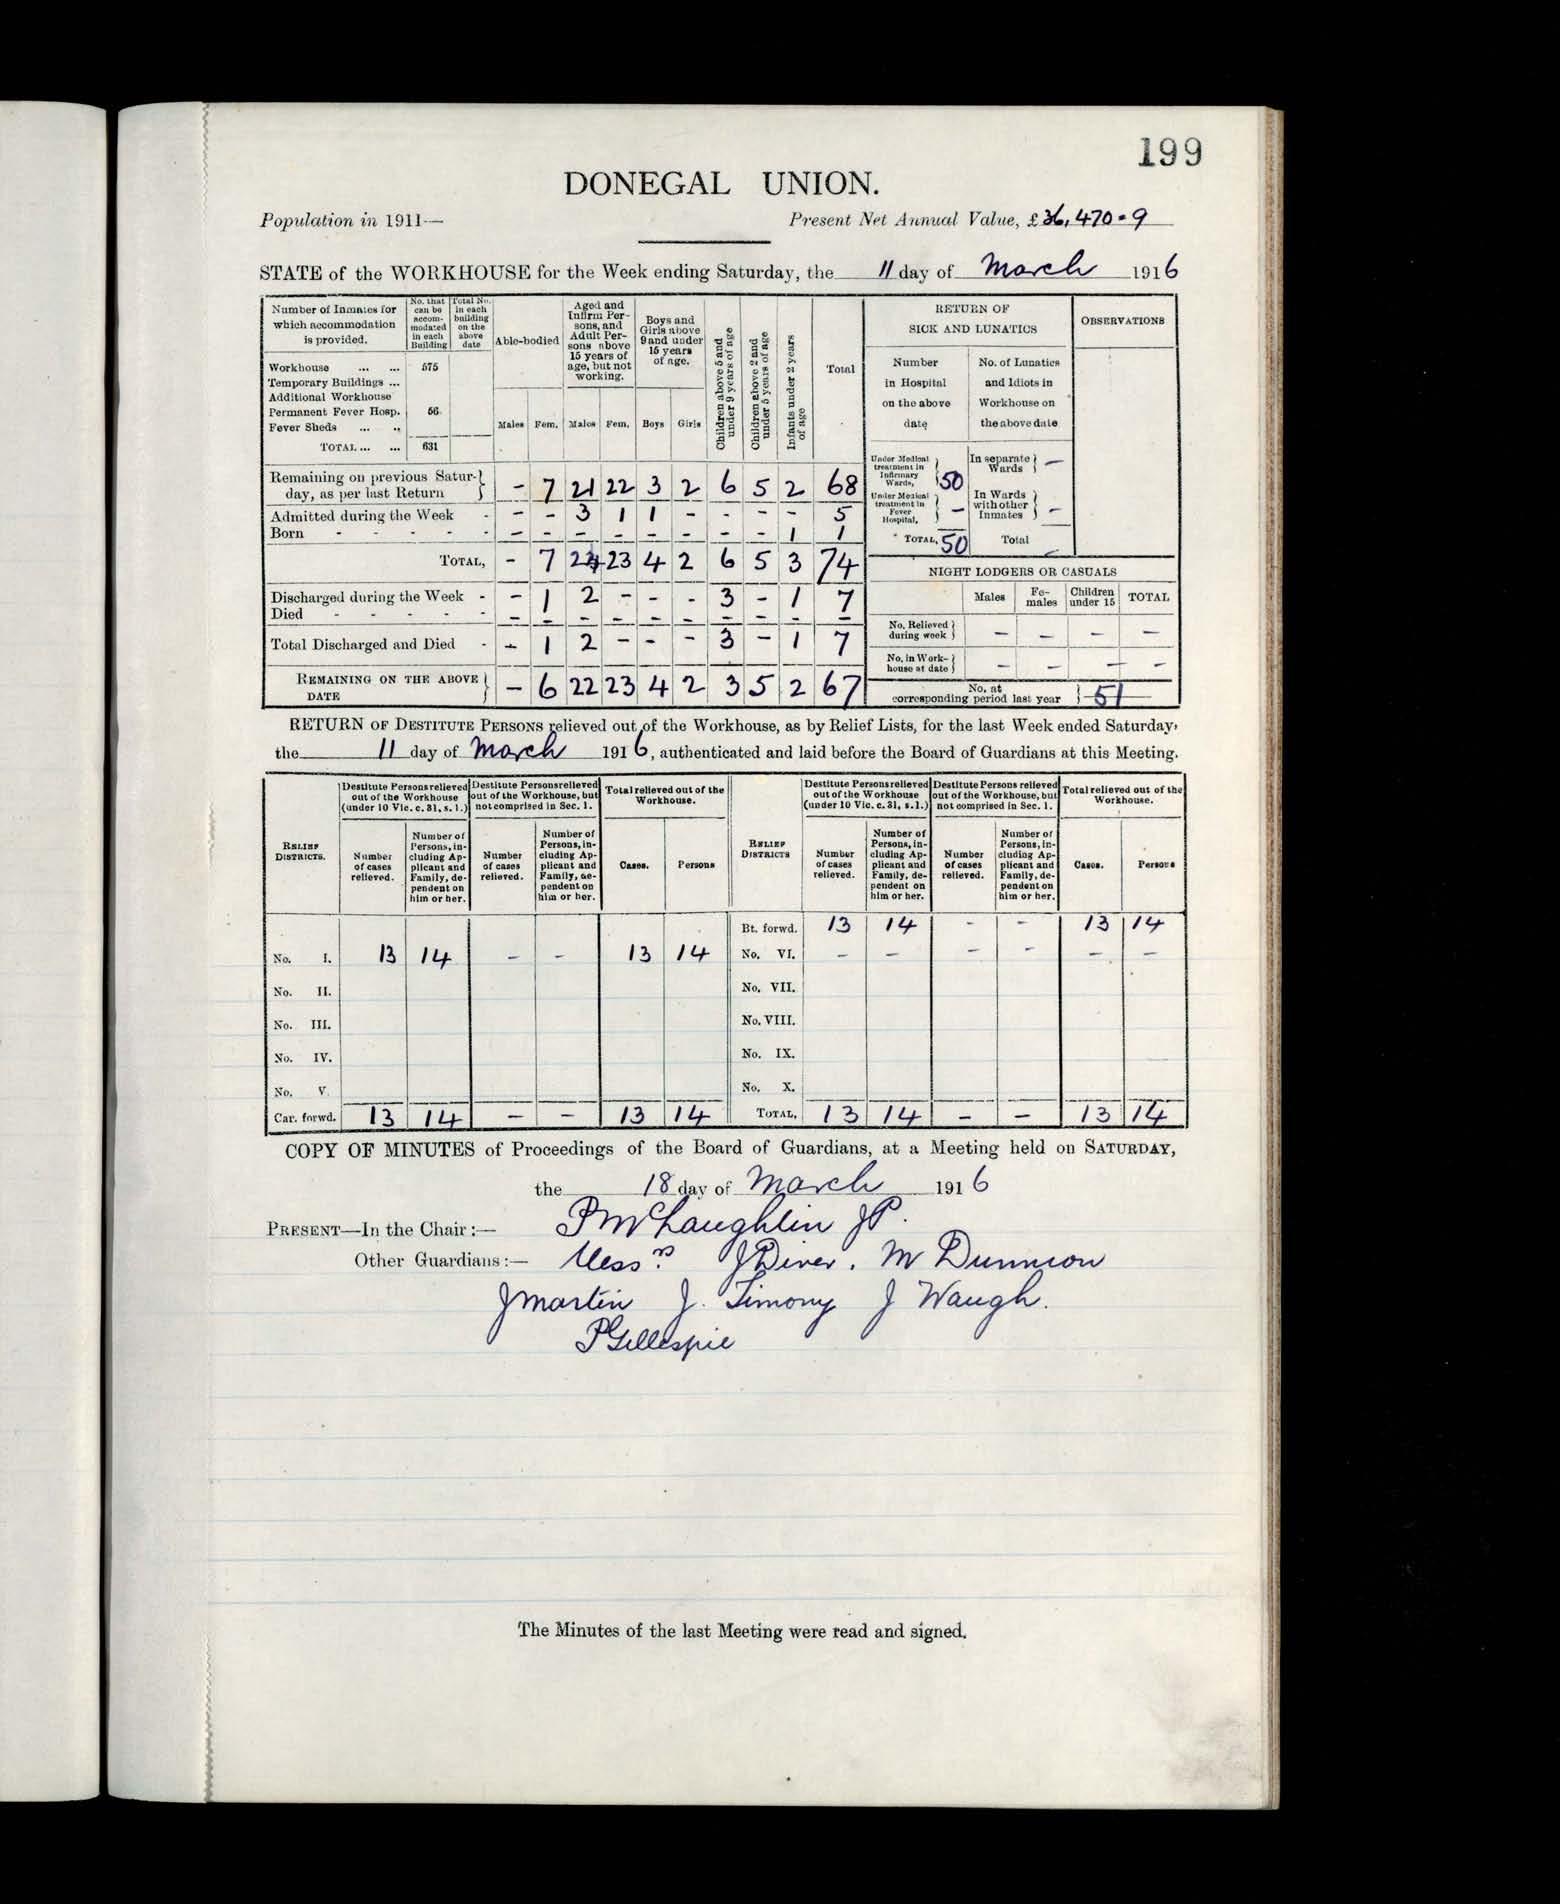 199
DONEGAL UNION.
Population in 1911— Present Net Annual Value, £36,470 - 9
STATE of the WORKHOUSE for the Week ending Saturday, the 11 day of March 1916
Number of Inmates for which accommodation is provided. | No. that can be accommodated in each Building | Total No. in each building on the above date | Able-bodied | Aged and Infirm Persons, and Adult Persons above 15 years of age, but not working. | Boys and Girls above 9 and under 15 years of age. | Children above 5 and under 9 years of age | Children above 2 and under 5 years of age | Infants under 2 years of age | Total
Males Fem. Males Fem. Boys Girls
Workhouse ... ... 575
Temporary Buildings ...
Additional Workhouse
Permanent Fever Hosp. 56
Fever Sheds ... ..
TOTAL ... ... 631
Remaining on previous Saturday, as per last Return } - 7 21 22 3 2 6 5 2 68
Admitted during the Week - - - 3 1 1 - - - - 5
Born - - - - - - - - - - - - - 1 1
TOTAL, - 7 24 23 4 2 6 5 3 74
Discharged during the Week - - 1 2 - - - 3 - 1 7
Died - - - - - - - - - - - - - - -
Total Discharged and Died - - 1 2 - - - 3 - 1 7
REMAINING ON THE ABOVE DATE } - 6 22 23 4 2 3 5 2 67
RETURN OF SICK AND LUNATICS
OBSERVATIONS
Number in Hospital on the above date
No. of Lunatics and Idiots in Workhouse on the above date
Under Medical treatment in Infirmary Wards, } 50 In separate Wards } -
Under Medical treatment in Fever Hospital, } - In Wards with other Inmates } -
TOTAL, 50 Total -
NIGHT LODGERS OR CASUALS
Males Females Children under 15 TOTAL
No. Relieved during week } - - - -
No. in Workhouse at date } - - - -
No. at corresponding period last year } 51
RETURN OF DESTITUTE PERSONS relieved out of the Workhouse, as by Relief Lists, for the last Week ended Saturday,
the 11 day of March 1916, authenticated and laid before the Board of Guardians at this Meeting.
RELIEF DISTRICTS. | Destitute Persons relieved out of the Workhouse (under 10 Vic. c. 31, s. 1.) | Destitute Persons relieved out of the Workhouse, but not comprised in Sec. 1. | Total relieved out of the Workhouse. | RELIEF DISTRICTS | Destitute Persons relieved out of the Workhouse (under 10 Vic. c. 31, s.1.) | Destitute Persons relieved out of the Workhouse, but not comprised in Sec. 1. | Total relieved out of the Workhouse.
Number of cases relieved. | Number of Persons, including Applicant and Family, dependent on him or her. | Number of cases relieved. | Number of Persons, including Applicant and Family, dependent on him or her. | Cases. | Persons | Number of cases relieved. | Number of Persons, including Applicant and Family, dependent on him or her. | Number of cases relieved. | Number of Persons, including Applicant and Family, dependent on him or her. | Cases. | Persons
Bt. forwd. 13 14 - - 13 14
No. I. 13 14 - - 13 14 No. VI. - - - - - -
No. II. No. VII.
No. III. No. VIII.
No. IV. No. IX.
No. V. No. X.
Car. forwd. 13 14 - - 13 14 TOTAL, 13 14 - - 13 14
COPY OF MINUTES of Proceedings of the Board of Guardians, at a Meeting held on SATURDAY,
the 18 day of March 1916
PRESENT—In the Chair :— P McLaughlin JP.
Other Guardians :— Messrs. J Diver. M Dunnion
J Martin J. Timony J Waugh.
P Gillespie
The Minutes of the last Meeting were read and signed.